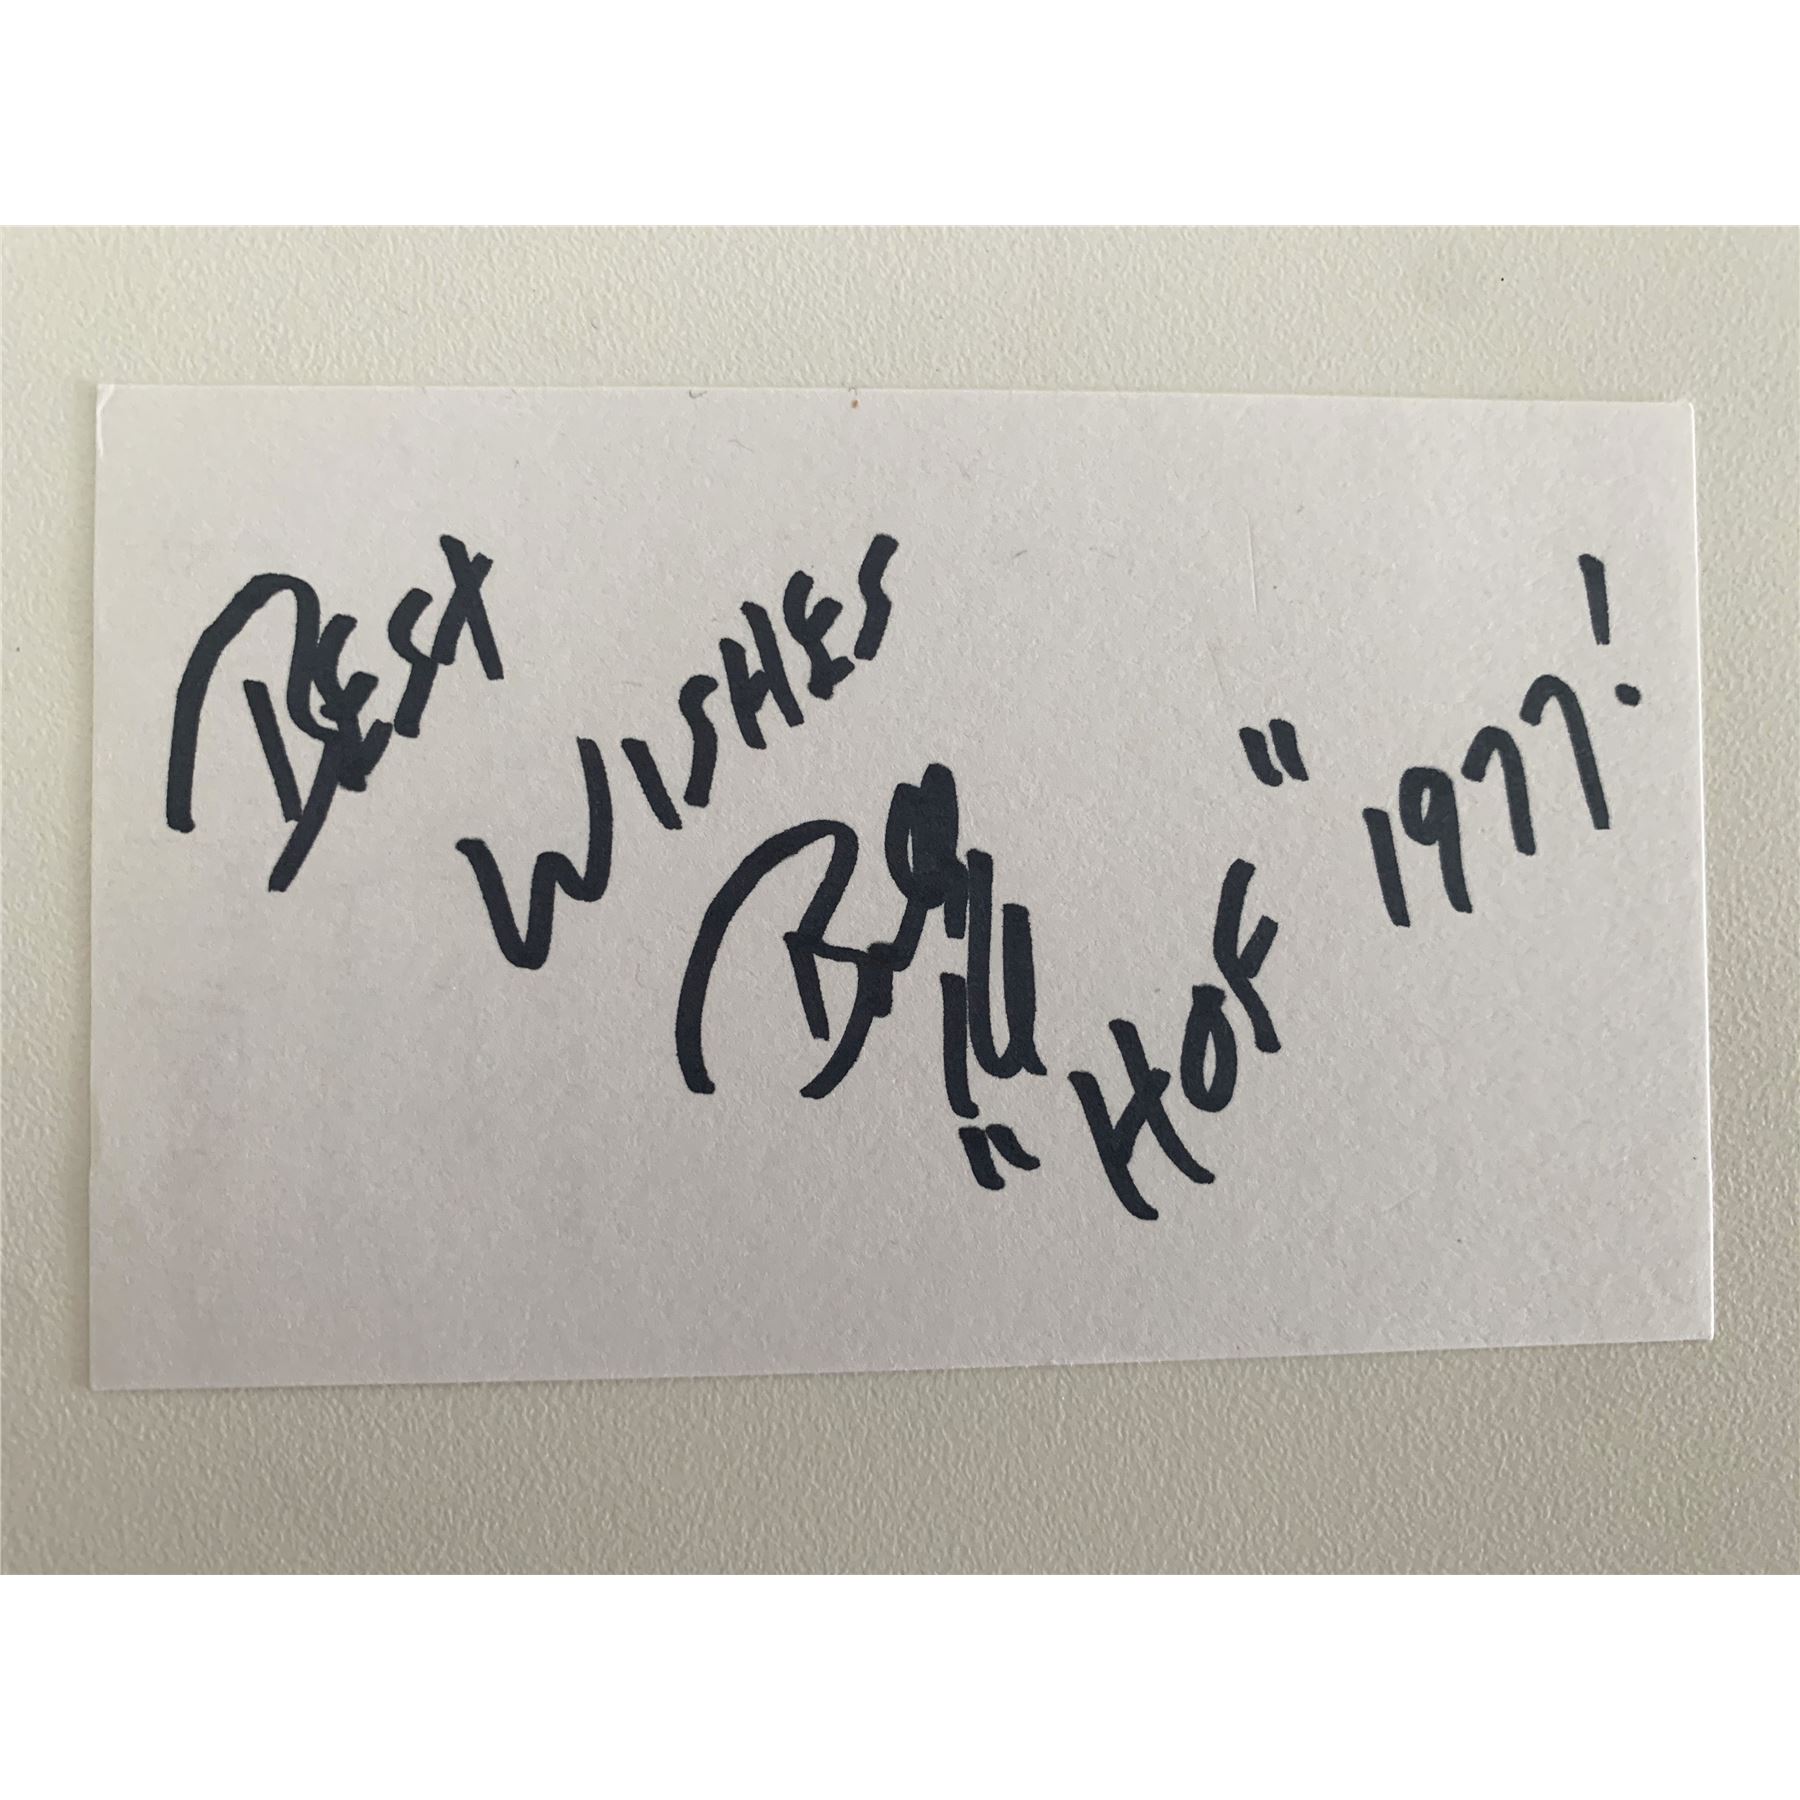 BEST
WISHES
Bill
"HOF" 1977!